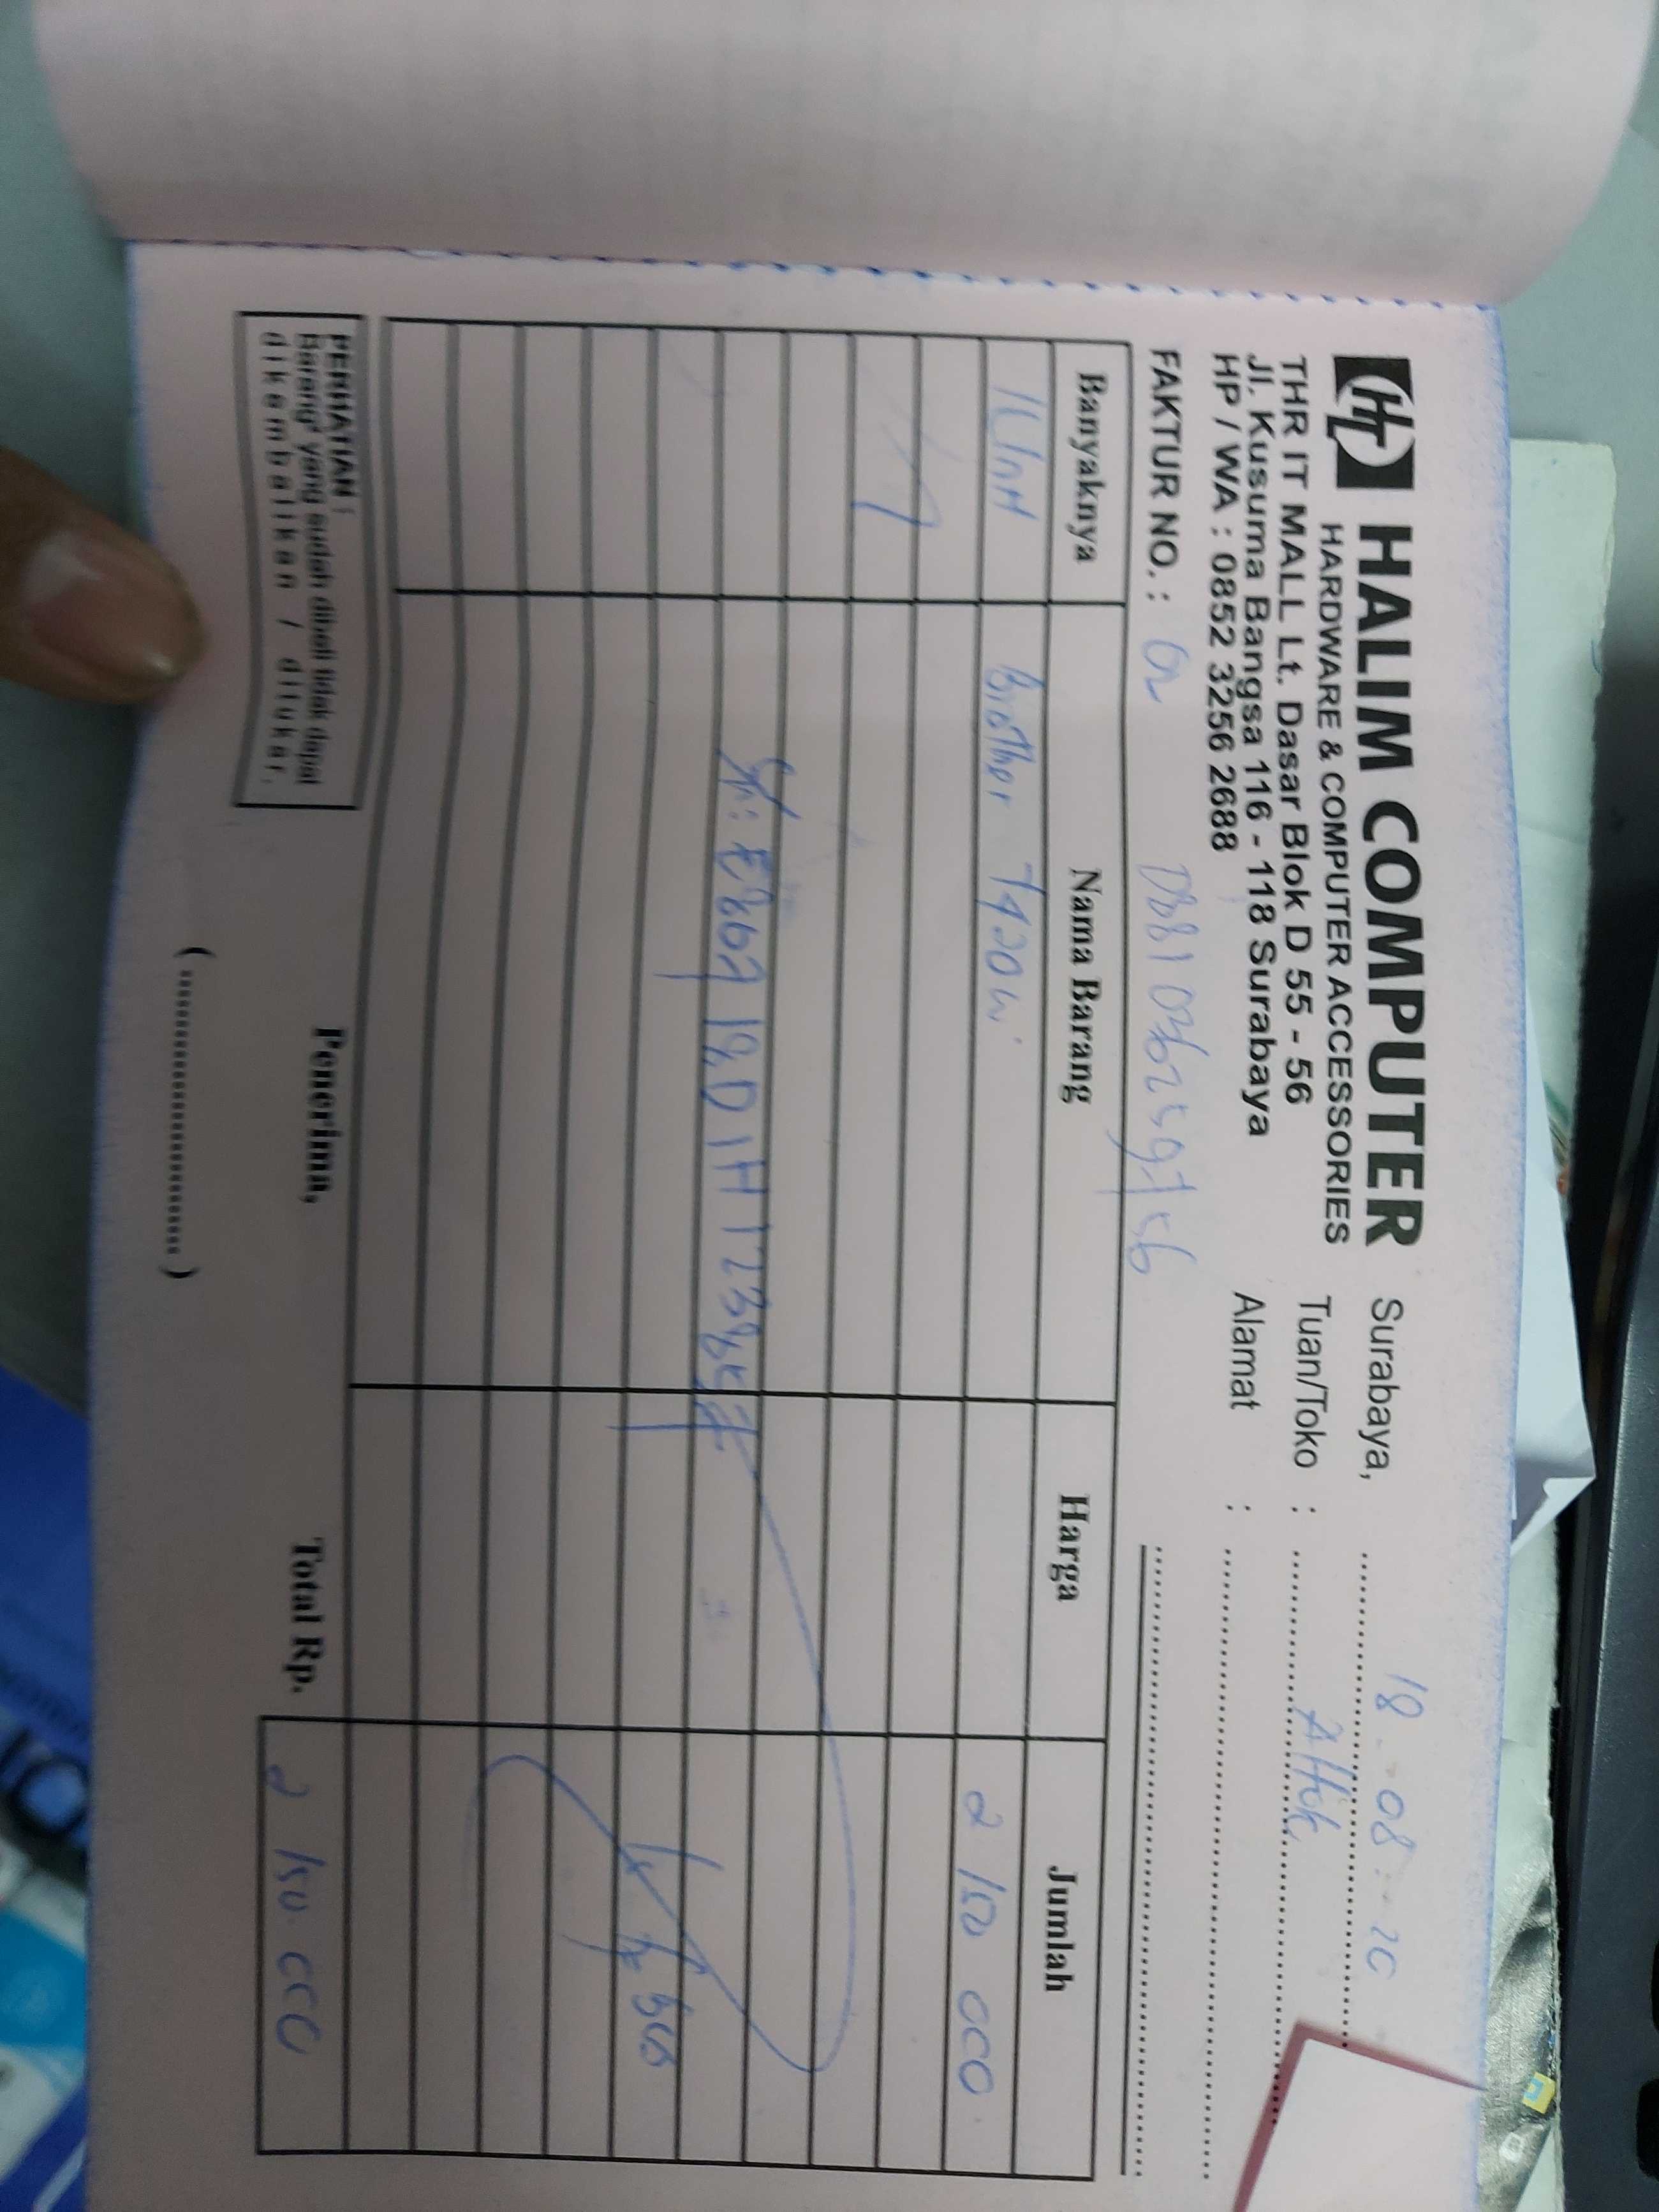 HT HALIM COMPUTER
HARDWARE & COMPUTER ACCESSORIES
THR IT MALL Lt. Dasar Blok D 55 - 56
Jl. Kusuma Bangsa 116 - 118 Surabaya
HP / WA : 0852 3256 2688
Surabaya, 18 - 08 - 20
Tuan/Toko :
Alamat :
FAKTUR NO. :
Banyaknya Nama Barang Harga Jumlah
1 Unit Brother T420W 2 150 000
Sn:
PERHATIAN :
Barang' yang sudah dibeli tidak dapat
dikembalikan / ditukar.
Penerima,
(....................)
Total Rp. 2 150 000